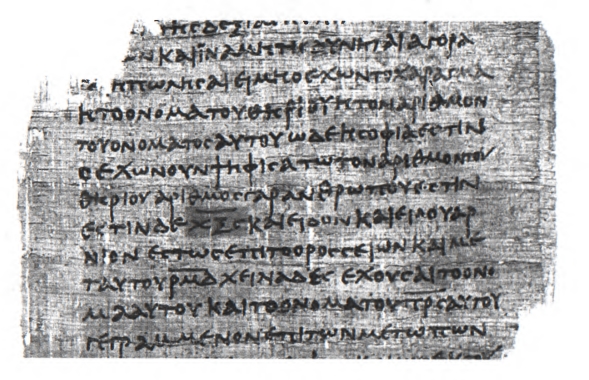 ΤΗϹΔΕΞΙΑϹ
ΩΝΚΑΙΪΝΑΜΗΤΙϹΔΥΝΗΤΑΙΑΓΟΡΑ
ΗΠΩΛΗϹΑΙΕΙΜΗΟΕΧΩΝΤΟΧΑΡΑΓΜΑ
ΗΤΟΟΝΟΜΑΤΟΥΘΗΡΙΟΥΗΤΟΝΑΡΙΘΜΟΝ
ΤΟΥΟΝΟΜΑΤΟϹΑΥΤΟΥΩΔΕΗϹΟΦΙΑΕϹΤΙΝ
ΟΕΧΩΝΟΥΝΨΗΦΙϹΑΤΩΤΟΝΑΡΙΘΜΟΝΤΟΥ
ΘΗΡΙΟΥΑΡΙΘΜΟϹΓΑΡΑΝΘΡΩΠΟΥΕϹΤΙΝ
ΕϹΤΙΝΔΕΧΞϚΚΑΙΕΙΔΟΝΚΑΙΕΙΔΟΥΑΡ
ΝΙΟΝΕϹΤΩϹΕΠΙΤΟΟΡΟϹϹΕΙΩΝΚΑΙΜΕ
ΤΑΥΤΟΥΡΜΔΧΕΙΛΙΑΔΕϹΕΧΟΥϹΑΙΤΟΟΝΟ
ΜΑΑΥΤΟΥΚΑΙΤΟΟΝΟΜΑΤΟΥΠΡϹΑΥΤΟΥ
ΓΕΓΡΑΜΜΕΝΟΝΕΠΙΤΩΝΜΕΤΩΠΩΝ